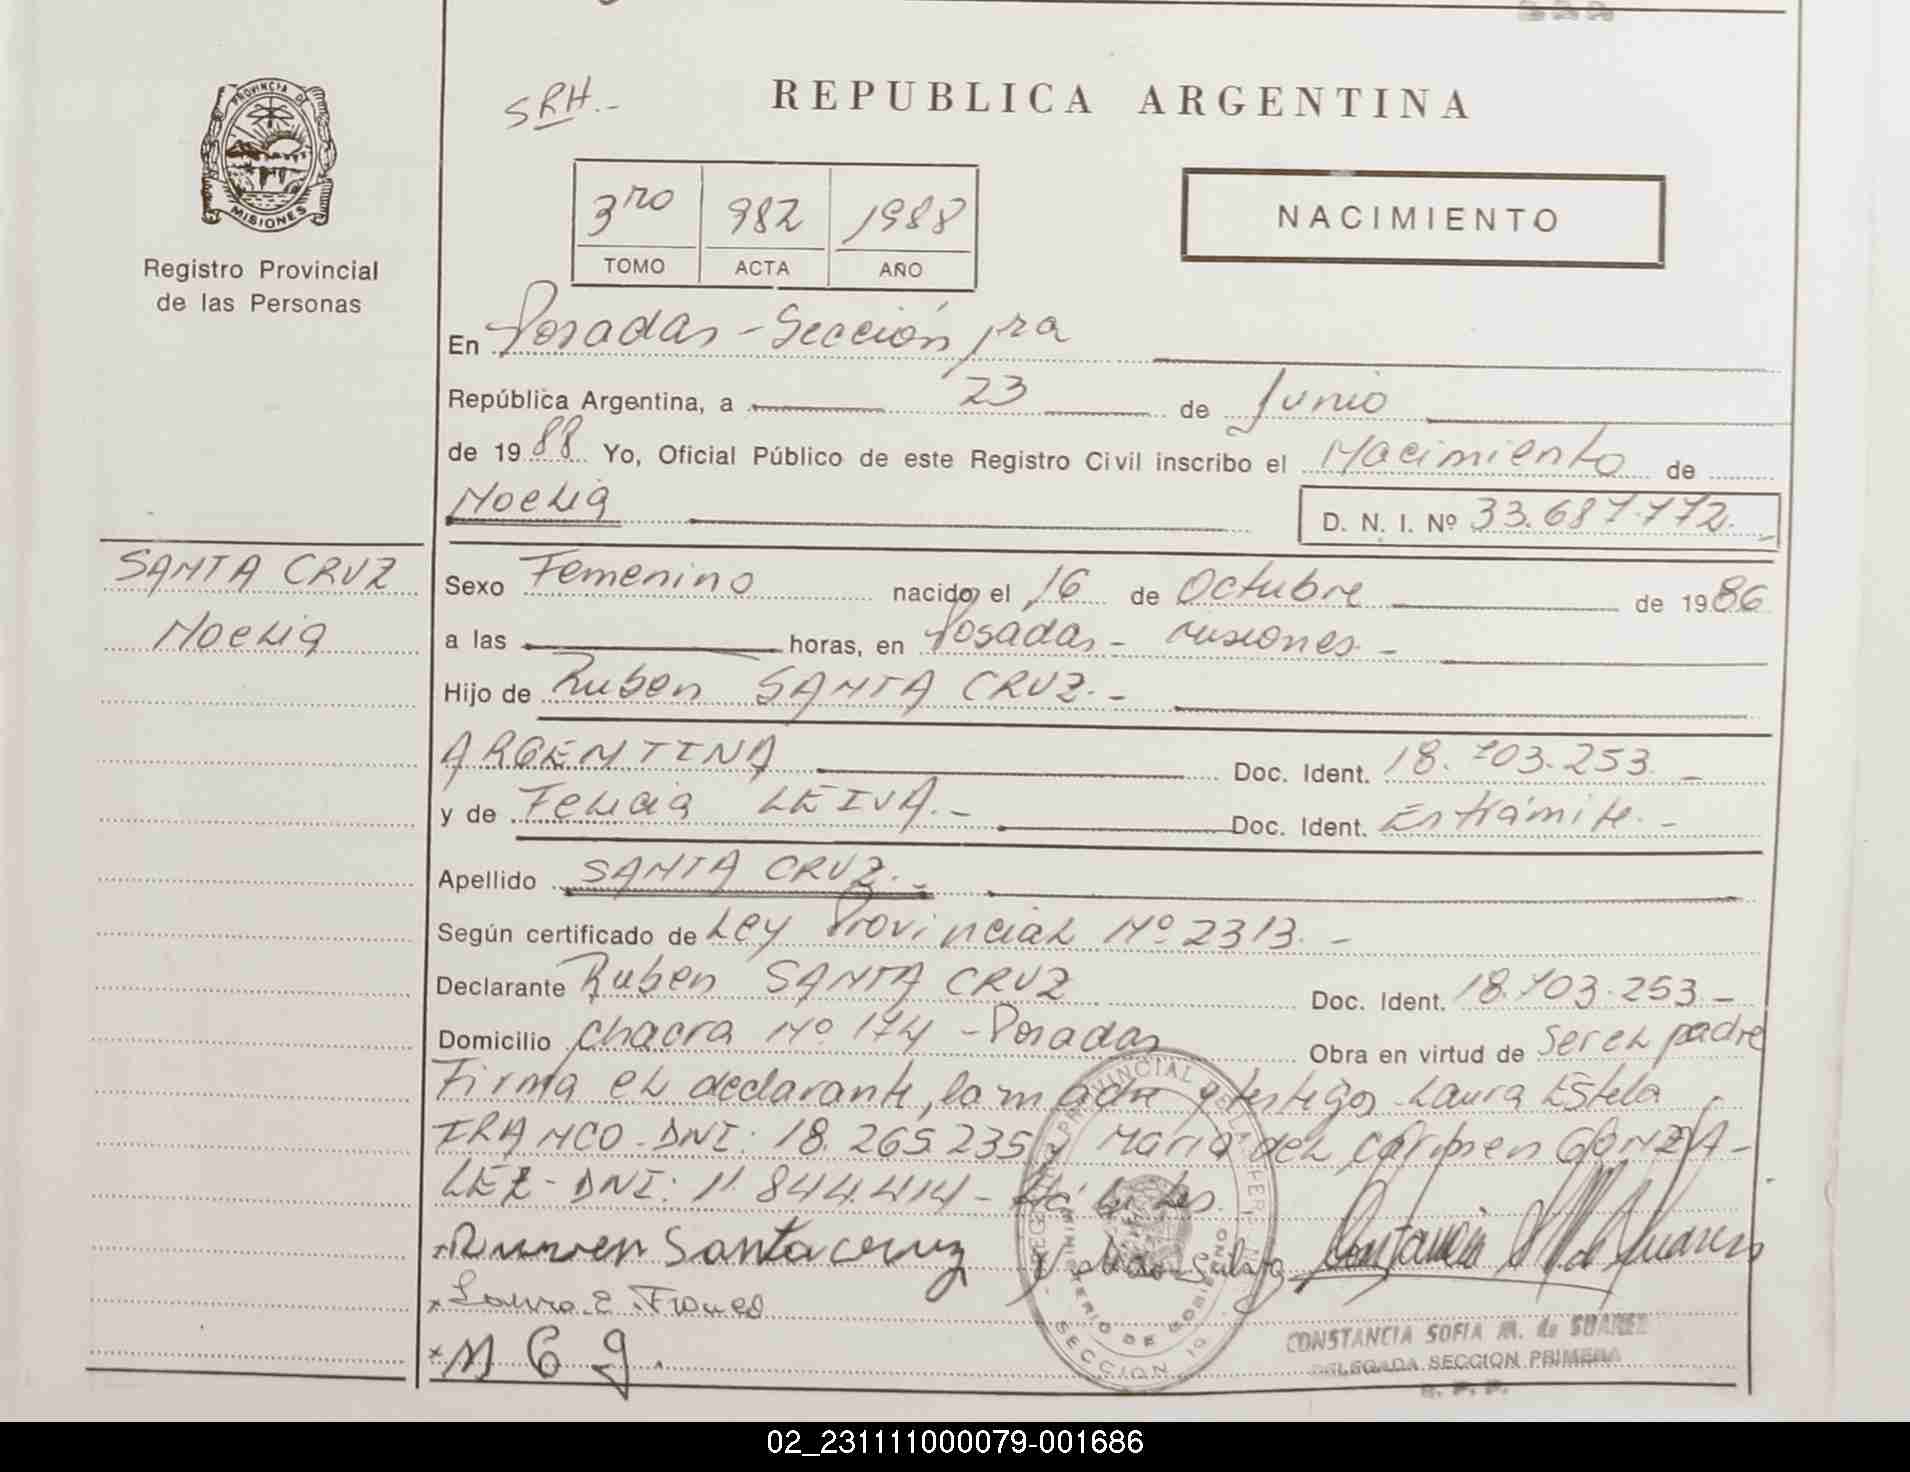 PROVINCIA DE
MISIONES
Registro Provincial
de las Personas
SANTA CRUZ
Noelia
SRH.-
REPUBLICA ARGENTINA
3ro 982 1988
TOMO ACTA AÑO
NACIMIENTO
En Posadas - Sección 1ra
República Argentina, a 23 de Junio
de 1988 Yo, Oficial Público de este Registro Civil inscribo el Nacimiento de
Noelia D. N. I. Nº 33.687.772.-
Sexo Femenino nacido el 16 de Octubre de 1986
a las horas, en Posadas - Misiones -
Hijo de Ruben SANTA CRUZ.-
ARGENTINA Doc. Ident. 18.703.253.-
y de Felicia LEIVA.- Doc. Ident. En trámite.-
Apellido SANTA CRUZ.-
Según certificado de Ley Provincial Nº 2313.-
Declarante Ruben SANTA CRUZ Doc. Ident. 18.703.253.-
Domicilio Chacra Nº 174 - Posadas Obra en virtud de Ser el padre
Firma el declarante, la madre y testigos Laura Estela
FRANCO - DNI: 18.265.235 y Maria del Carmen GONZA-
LEZ - DNI: 11.844.414 - Hábiles.
x Ruven Santa cruz
x Laura E. Franco
x M G g.
CONSTANCIA SOFIA M. de SUAREZ
DELEGADA SECCION PRIMERA
R. P. P.
02_231111000079-001686